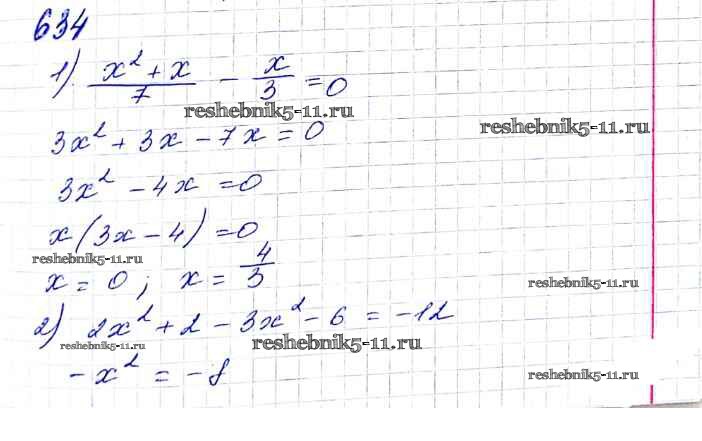 634
1). (x² + x)/7 - x/3 = 0
reshebnik5-11.ru
reshebnik5-11.ru
3x² + 3x - 7x = 0
3x² - 4x = 0
x(3x - 4) = 0
reshebnik5-11.ru
x = 0; x = 4/3
reshebnik5-11.ru
2) 2x² + 2 - 3x² - 6 = -12
reshebnik5-11.ru
reshebnik5-11.ru
-x² = -8
reshebnik5-11.ru